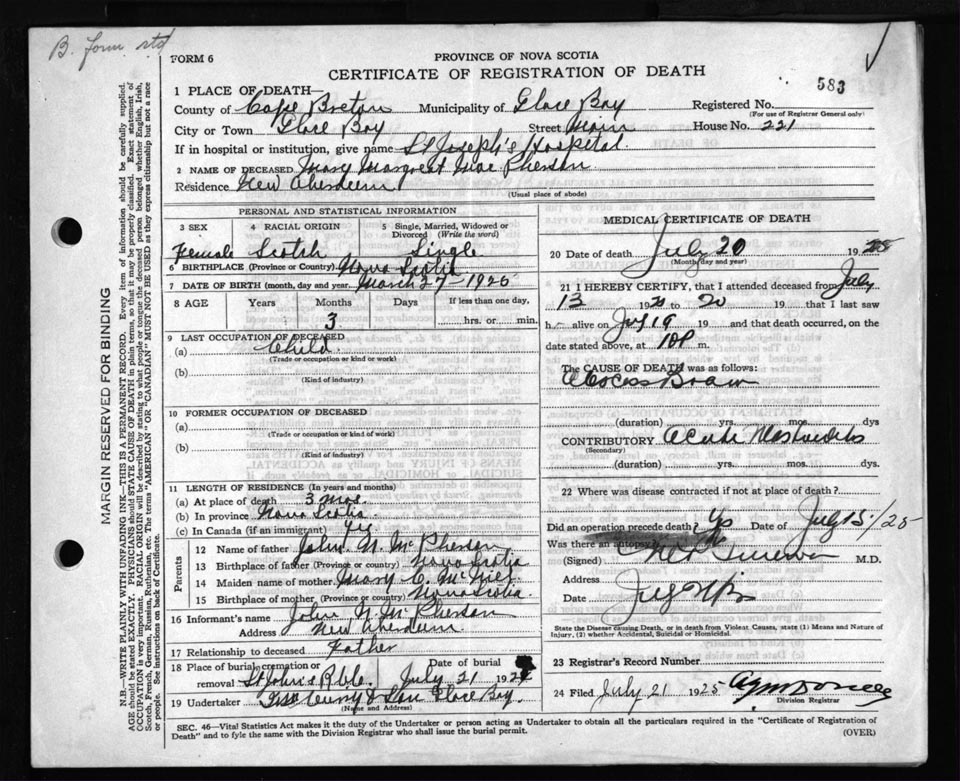 B. Form std
FORM 6
PROVINCE OF NOVA SCOTIA
CERTIFICATE OF REGISTRATION OF DEATH
583
1 PLACE OF DEATH—
County of Cape Breton Municipality of Glace Bay Registered No.
(For use of Registrar General only)
City or Town Glace Bay Street Main House No. 221
If in hospital or institution, give name St Joseph's Hospital
2 NAME OF DECEASED Mary Margaret Mac Pherson
Residence New Aberdeen
(Usual place of abode)
PERSONAL AND STATISTICAL INFORMATION
3 SEX 4 RACIAL ORIGIN 5 Single, Married, Widowed or Divorced (Write the word)
Female Scotch Single
6 BIRTHPLACE (Province or Country) Nova Scotia
7 DATE OF BIRTH (month, day and year) March 27-1925
8 AGE Years Months Days If less than one day,
3 hrs. or min.
9 LAST OCCUPATION OF DECEASED
(a) Child
(Trade or occupation or kind or work)
(b)
(Kind of industry)
10 FORMER OCCUPATION OF DECEASED
(a)
(Trade or occupation or kind of work)
(b)
(Kind of industry)
11 LENGTH OF RESIDENCE (In years and months)
(a) At place of death 3 mos.
(b) In province Nova Scotia
(c) In Canada (if an immigrant) yes
Parents
12 Name of father John N. McPherson
13 Birthplace of father (Province or country) Nova Scotia
14 Maiden name of mother Mary C. McNiel
15 Birthplace of mother (Province or country) Nova Scotia
16 Informant's name John N. McPherson
Address New Aberdeen
17 Relationship to deceased Father
18 Place of burial, cremation or removal St John's Date of burial July 21 192
19 Undertaker Curry & Son Glace Bay.
(Name and Address)
MEDICAL CERTIFICATE OF DEATH
20 Date of death July 20 19 25
(Month, day and year)
21 I HEREBY CERTIFY, that I attended deceased from July
13 19 to 20 19 that I last saw
h alive on July 19 19 and that death occurred, on
date stated above, at 10 P m.
The CAUSE OF DEATH was as follows:
Abscess Brain
(duration) yrs. mos. dys
CONTRIBUTORY Acute Mastoiditis
(Secondary)
(duration) yrs. mos. dys.
22 Where was disease contracted if not at place of death?
Did an operation precede death? Yes Date of July 15/25
Was there an autopsy?
(Signed) M.D.
Address
Date July
State the Disease causing Death, or in death from Violent Causes, state (1) Means and Nature of Injury, (2) whether Accidental, Suicidal or Homicidal.
23 Registrar's Record Number
24 Filed July 21 1925
Division Registrar
SEC. 46—Vital Statistics Act makes it the duty of the Undertaker or person acting as Undertaker to obtain all the particulars required in the "Certificate of Registration of
Death" and to fyle the same with the Division Registrar who shall issue the burial permit. (OVER)
MARGIN RESERVED FOR BINDING
N.B.—WRITE PLAINLY WITH UNFADING INK—THIS IS A PERMANENT RECORD. Every item of information should be carefully supplied.
AGE should be stated EXACTLY. PHYSICIANS should STATE CAUSE OF DEATH in plain terms, so that it may be properly classified. Exact statement of
OCCUPATION is very important. RACIAL ORIGIN will be described by stating to what people or tongue the deceased person belonged whether English, Irish,
Scotch, French, German, Russian, Ruthenian, etc. The terms "AMERICAN" OR "CANADIAN" MUST NOT BE USED as they express citizenship but not a race
or people. See instructions on back of Certificate.